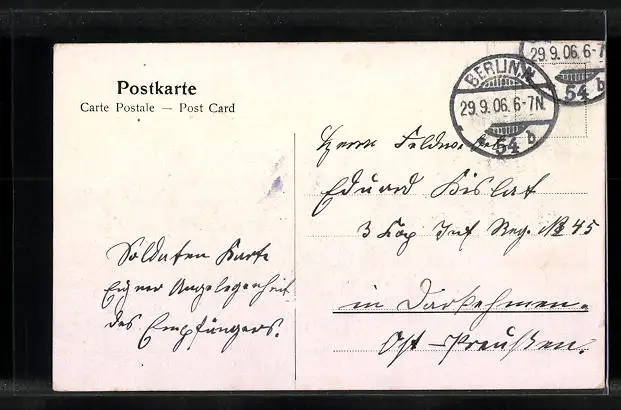 Postkarte
Carte Postale — Post Card
BERLIN N.
29.9.06. 6-7N.
54 b
29.9.06. 6-7
54 b
Herrn Feldw.
Eduard Kislat
3 Kop Inf Reg. № 45
in Darkehmen.
Ost-Preußen.
Soldaten Karte
Eigner Angelegenheit
des Empfängers.